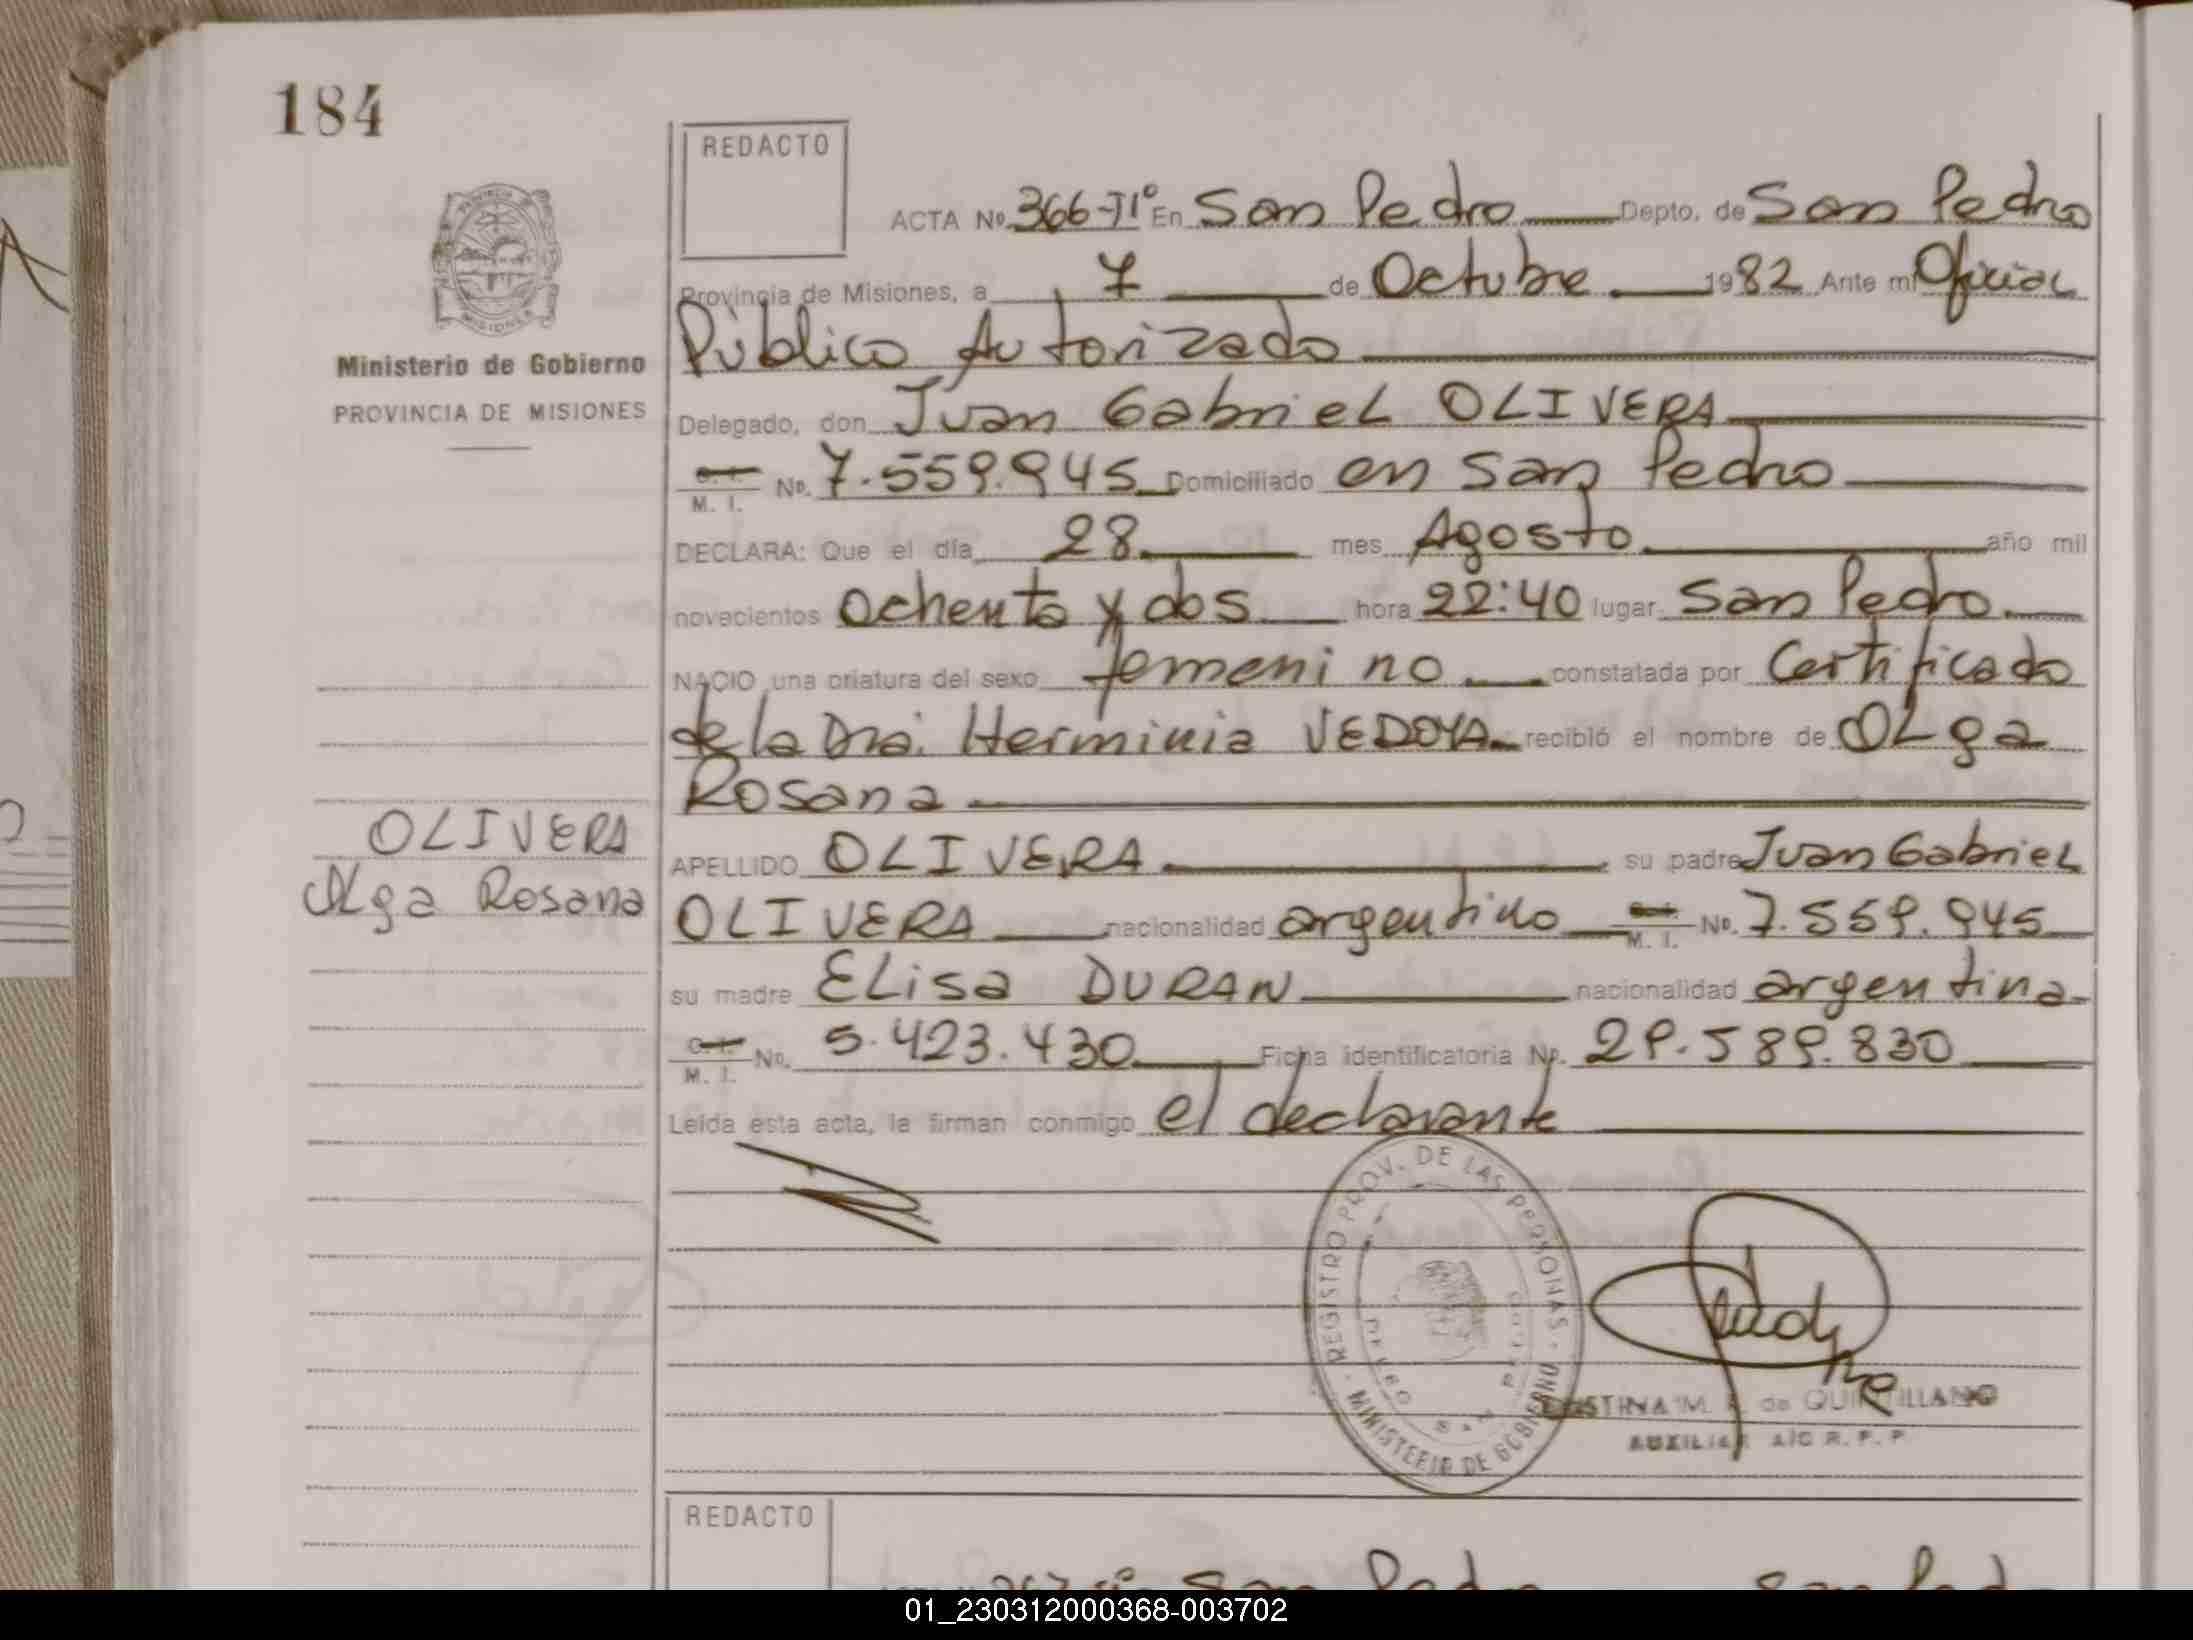 184
REDACTO
ACTA No. 366-TIº En San Pedro Depto. de San Pedro
Provincia de Misiones, a 7 de Octubre 1982 Ante mi Oficial
Público Autorizado
Delegado, don Juan Gabriel OLIVERA
C. I. M. I. No. 7.559.945 Domiciliado en San Pedro
DECLARA: Que el día 28 mes Agosto año mil
novecientos ochenta y dos hora 22:40 lugar San Pedro
NACIO una criatura del sexo femenino constatada por Certificado
de la Dra. Herminia VEDOYA recibió el nombre de OLga
Rosana
APELLIDO OLIVERA su padre Juan Gabriel
OLIVERA nacionalidad argentino M. I. No. 7.559.945
su madre ELisa DURAN nacionalidad argentina
C. I. M. I. No. 5.423.430 Ficha identificatoria No. 29.589.830
Leída esta acta, la firman conmigo el declarante
PROVINCIA
MISIONES
Ministerio de Gobierno
PROVINCIA DE MISIONES
OLIVERA
Olga Rosana
REGISTRO PROV. DE LAS PERSONAS
MINISTERIO DE GOBIERNO
de QUINTILLANO
AUXILIAR A/C R. P. P.
REDACTO
San Pedro San Pedro
01_230312000368-003702